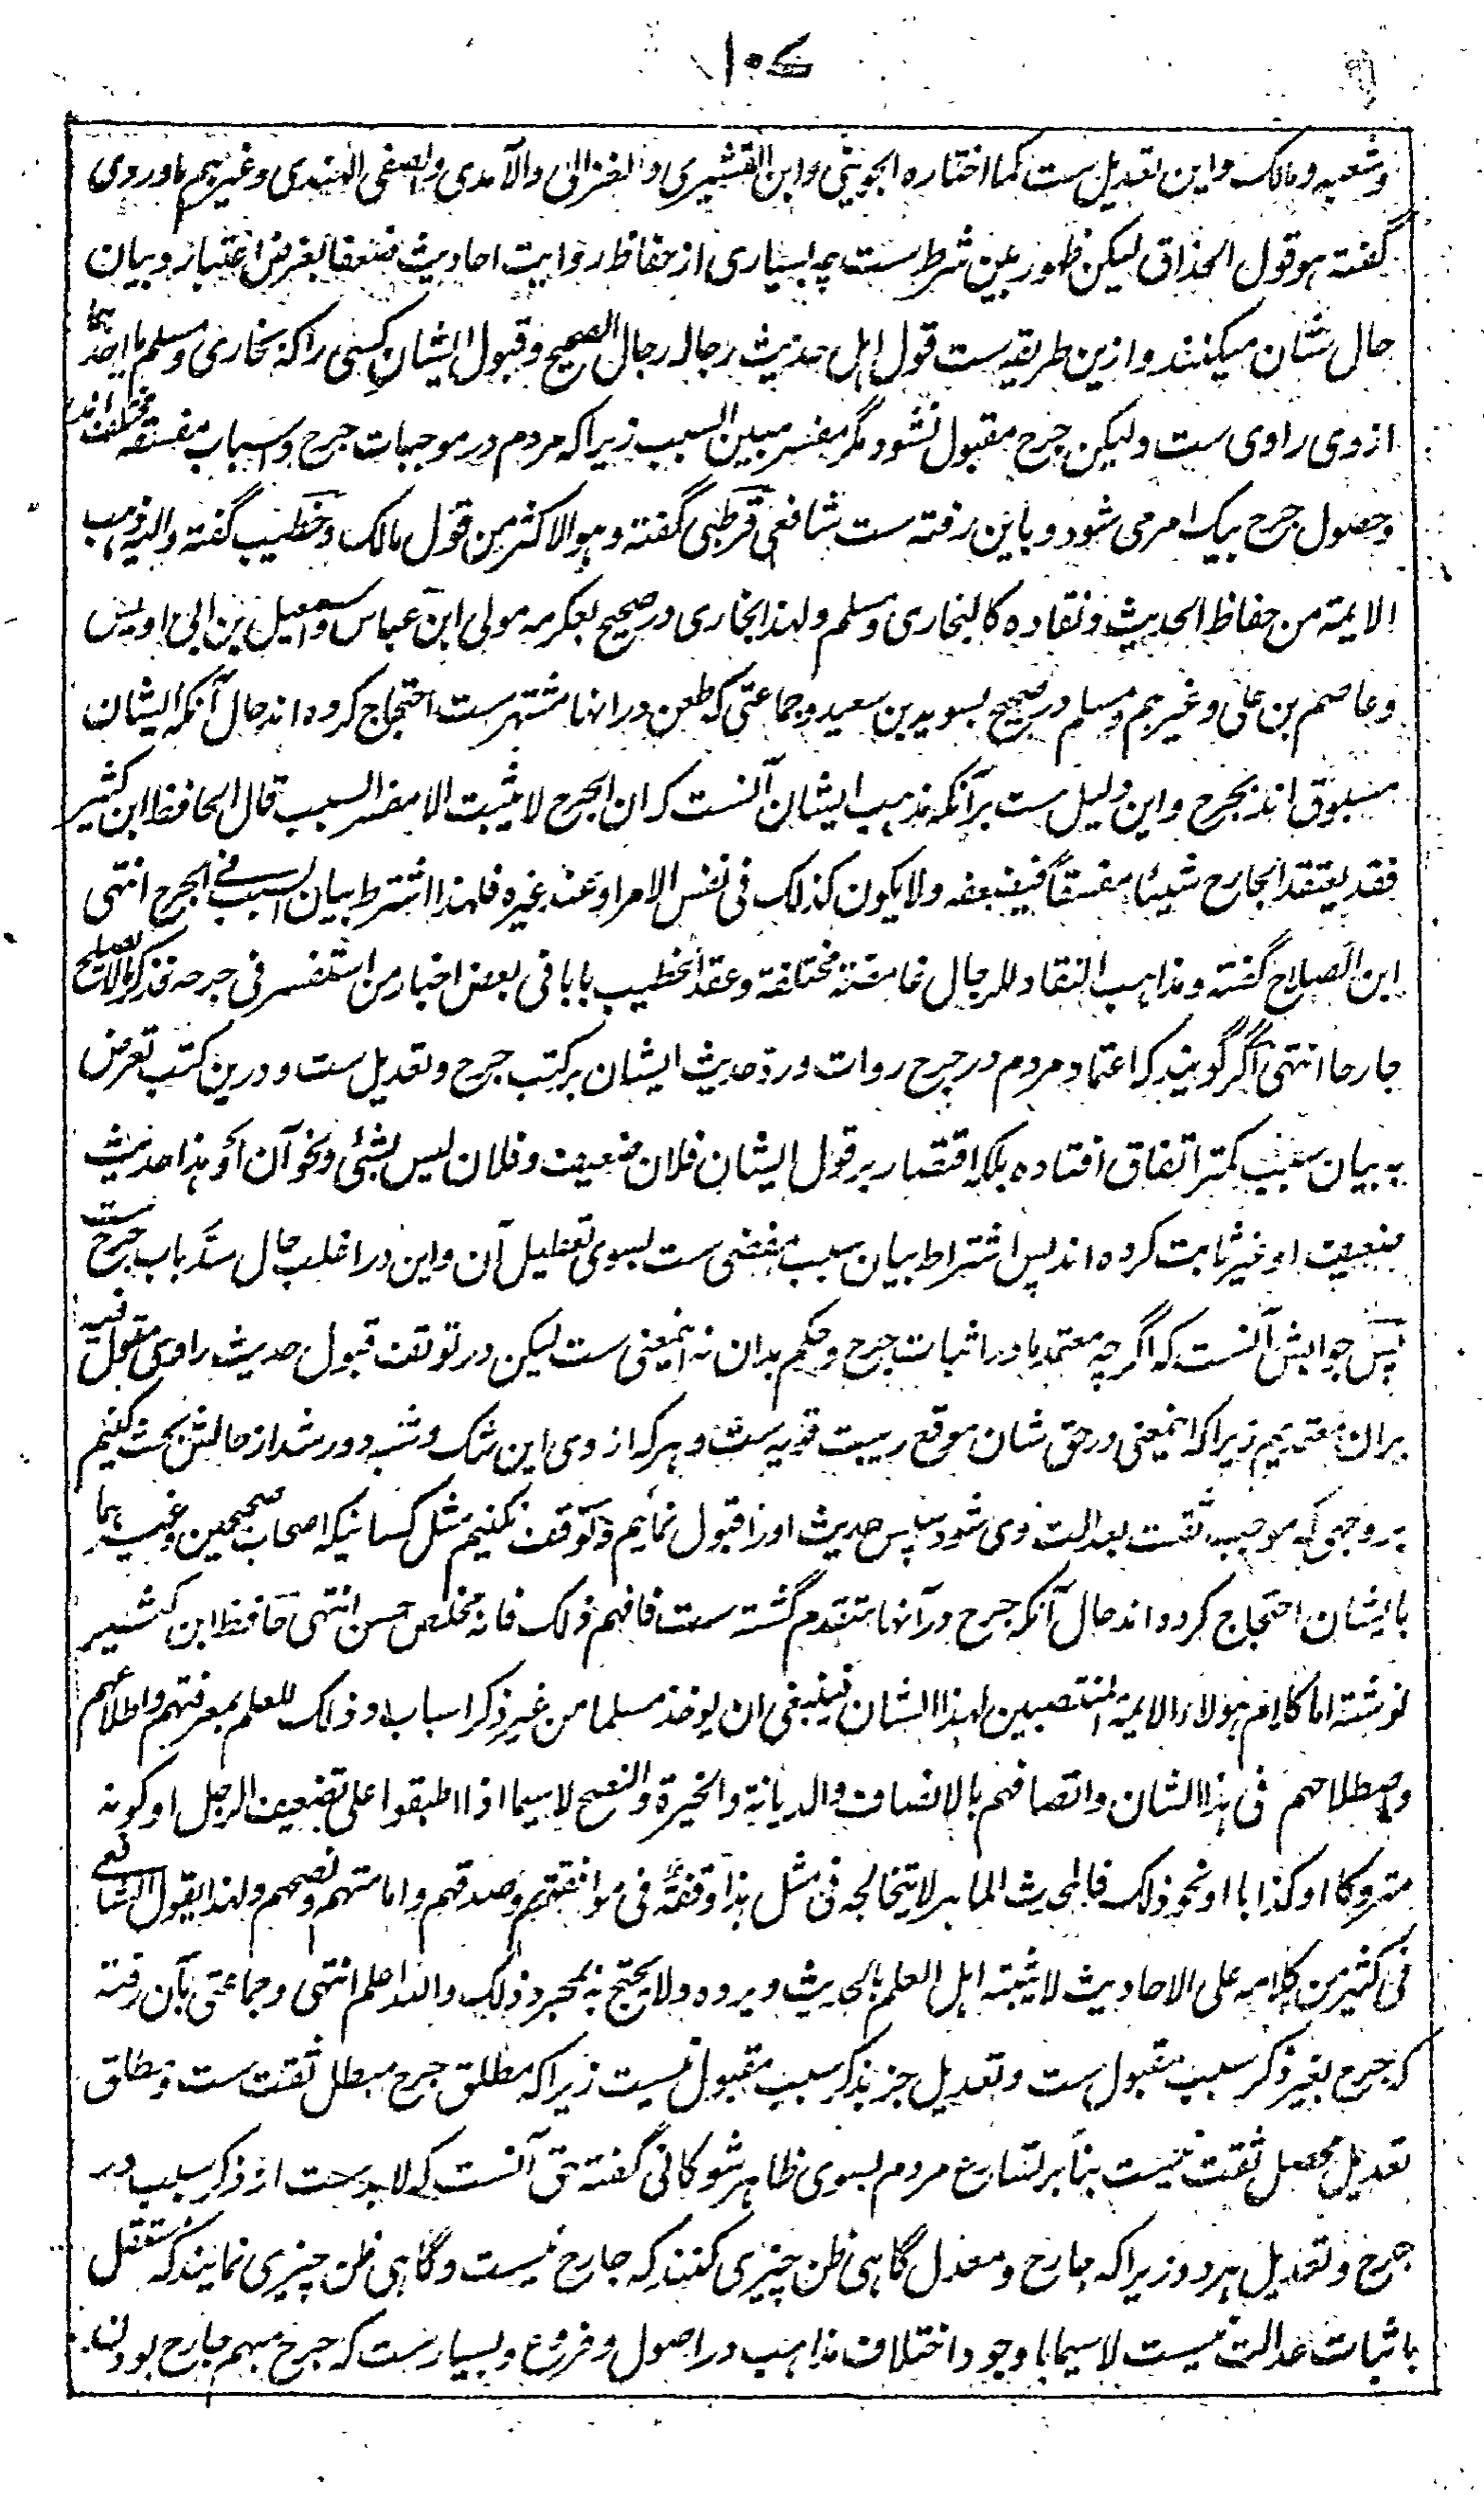 ۱۰۷
وشعبه ومالک واین تعدیل ست کما اختاره الجوینی وابن القشیری والغزالی والآمدی والصفی الهندی وغیرهم ماوردی
گفته هو قول الحذاق لیکن ظهور عین شرط ست چه بسیاری از حفاظ روایت احادیث ضعفا بغرض اعتبار وبیان
حال شان میکنند وازین طریقه ست قول اهل حدیث رجاله رجال الصحیح وقبول ایشان کسی را که بخاری ومسلم یا احدهما
از وی راوی ست ولیکن جرح مقبول نشود مگر مفسر مبین السبب زیرا که مردم در موجبات جرح واسباب مفسقه مختلف اند
وحصول جرح بیک امر می شود وباین رفته ست شافعی قرطبی گفته وهو الاکثر من قول مالک وخطیب گفته والیه ذهب
الایمة من حفاظ الحدیث ونقاده کالبخاری ومسلم ولهذا بخاری در صحیح بعکرمه مولی ابن عباس واسمعیل بن ابی اویس
وعاصم بن علی وغیرهم ومسلم در صحیح بسوید بن سعید وجماعتی که طعن در انها مشتهر ست احتجاج کرده اند حال آنکه ایشان
مسبوق اند بجرح واین دلیل ست برآنکه مذهب ایشان آنست که ان الجرح لا یثبت الا مفسر السبب قال الحافظ ابن کثیر
فقد یعتقد الجارح شیئا مفسقاً فیضعفه ولا یکون کذلک فی نفس الامر او عند غیره فلهذا اشترط بیان السبب فی الجرح انتهی
ابن الصلاح گفته ومذاهب النقاد للرجال غامضة مختلفة وعقد الخطیب بابا فی بعض اخبار من استفسر فی جرحه فذکر ما لا یصلح
جارحا انتهی اگر گویند که اعتماد مردم در جرح روات ورد حدیث ایشان بر کتب جرح وتعدیل ست ودرین کتب تعرض
به بیان سبب کمتر اتفاق افتاده بلکه اقتصار بر قول ایشان فلان ضعیف وفلان لیس بشئی ونحو آن او هذا حدیث
ضعیف او غیر ثابت کرده اند پس اشتراط بیان سبب مفضی ست بسوی تعطیل آن واین در اغلب حال سد باب جرح ست
پس جوابش آنست که اگرچه معتمد ما در اثبات جرح وحکم بدان نه اینمعنی ست لیکن در توقف قبول حدیث راوی مقول فیه
بران معتمدیم زیرا که اینمعنی در حق شان موقع ریبت قویه ست وهر که از وی این شک وشبه دور شد از حالش بحث کنیم
بر وجهی که موجب ثقت بعدالت وی شود سپس حدیث او را قبول نمایم وتوقف نکنیم مثل کسانیکه اصحاب صحیحین وغیرهما
بایشان احتجاج کرده اند حال آنکه جرح در آنها متقدم گشته ست فافهم ذلک فانه مخلص حسن انتهی حافظ ابن کثیر
نوشته اما کلام هؤلاء الایمة المنتصبین لهذا الشان فینبغی ان یوخذ مسلما من غیر ذکر اسباب وذلک للعلم بمعرفتهم واطلاعهم
واصطلاحهم فی هذا الشان واتصافهم بالانصاف والدیانة والخبرة والنصح لا سیما اذا اطبقوا علی تضعیف الرجل او کونه
متروکا او کذابا او نحو ذلک فالمحدث الماهر لا یتخالجه فی مثل هذا وقفة فی موافقتهم وصدقهم وامانتهم ونصحهم ولهذا یقول الشافعی
فی کثیر من کلامه علی الاحادیث لا یثبته اهل العلم بالحدیث ویرده ولا یحتج به بمجرد ذلک والله اعلم انتهی وجماعتی بآن رفته
که جرح بغیر ذکر سبب مقبول ست وتعدیل جز بذکر سبب مقبول نیست زیرا که مطلق جرح مبطل ثقت ست ومطلق
تعدیل محصل ثقت نیست بنا بر تسارع مردم بسوی ظاهر شوکانی گفته حق آنست که لابد ست از ذکر سبب در
جرح وتعدیل هر دو زیرا که جارح ومعدل گاهی ظن چیزی کنند که جارح نیست وگاهی ظن چیزی نمایند که مستقل
باثبات عدالت نیست لا سیما با وجود اختلاف مذاهب در اصول وفروع وبسیار ست که جرح مبهم جارح بودن